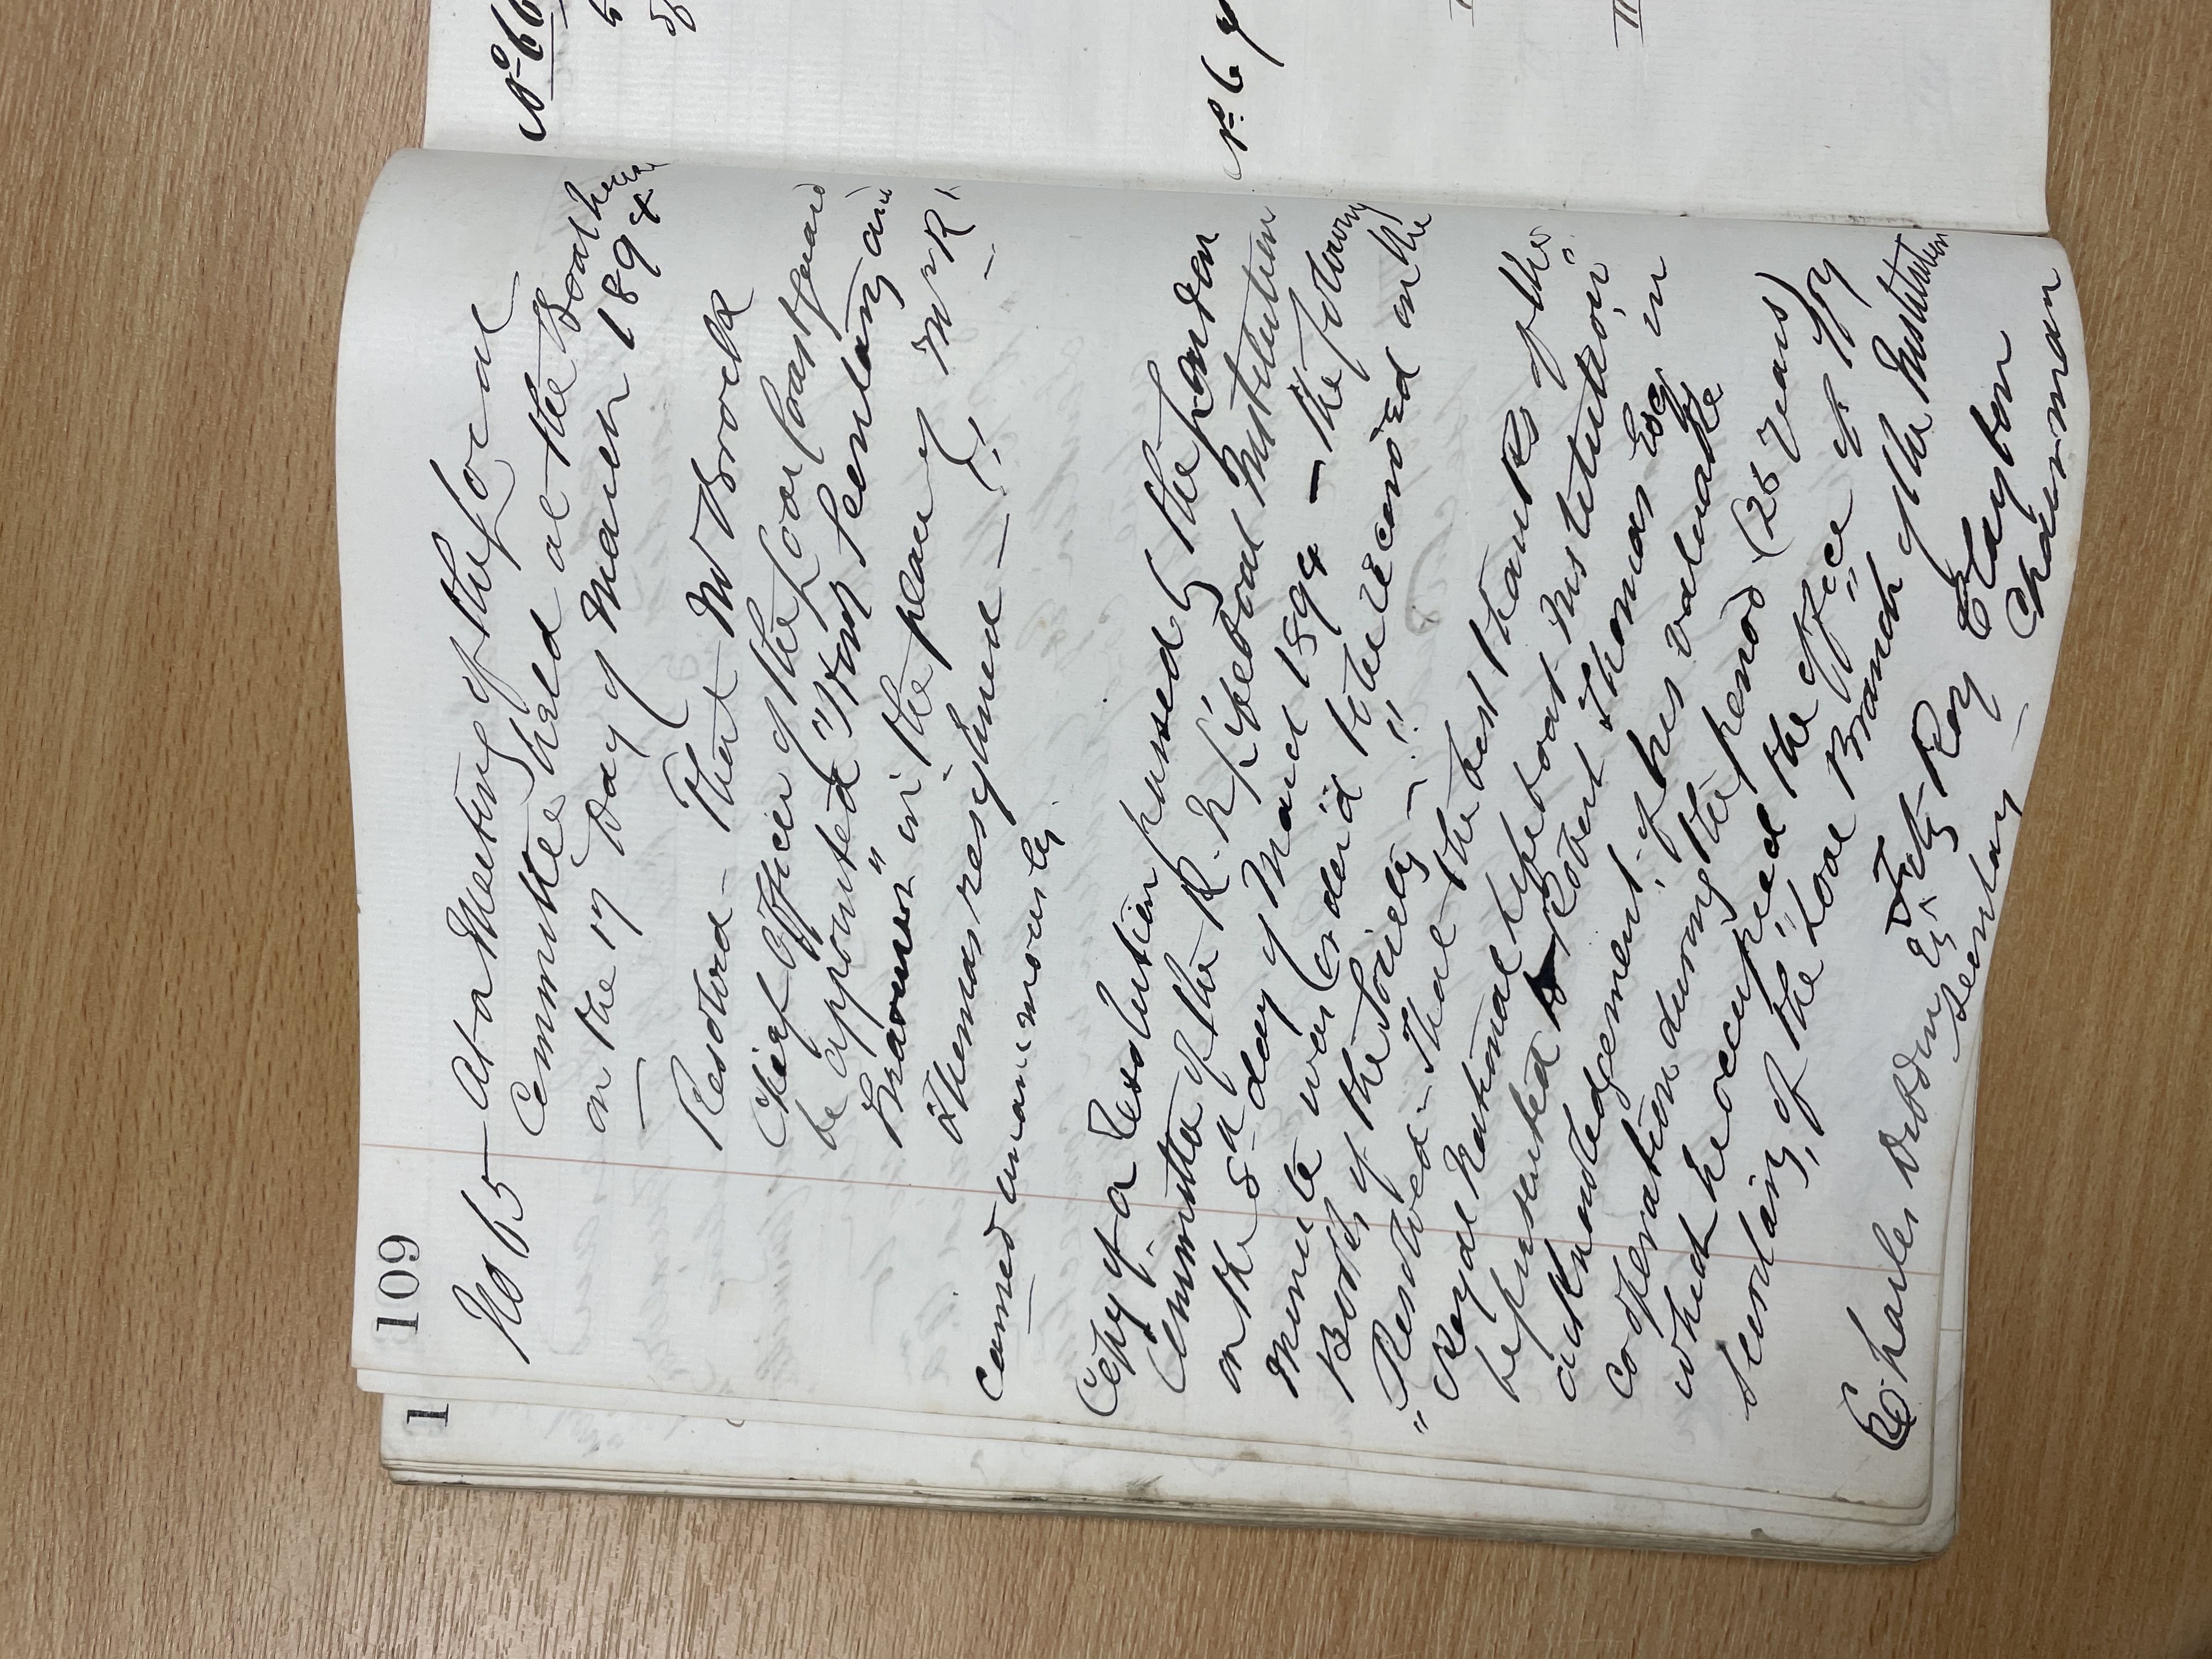 109
No 65 – At a Meeting of the Local
Committee held at the Boathouse
on the 17 Day of March 1894
Resolved – That Mr Brock
Chief Officer of the Local Coastguard
be appointed "Hony Secretary and
Treasurer" in the place of Mr R.
Thomas resigned –
Carried unanimously.
Copy of a Resolution passed by the London
Committee of the R. N. Lifeboat Institution
on the 8th day of March 1894 – The following
Minute was ordered to be recorded in the
Books of the Society –
"Resolved – That the best thanks of the
"Royal National Lifeboat Institution"
be presented to Robert Thomas Esq in
acknowledgement, of his valuable
cooperation during the period (26 years)
which he occupied the office of Hony
Secretary, of the Local Branch of the Institution
Charles Dibdin Esq Fitz-Roy Clayton
Secretary – Chairman
1
No 66
No 67